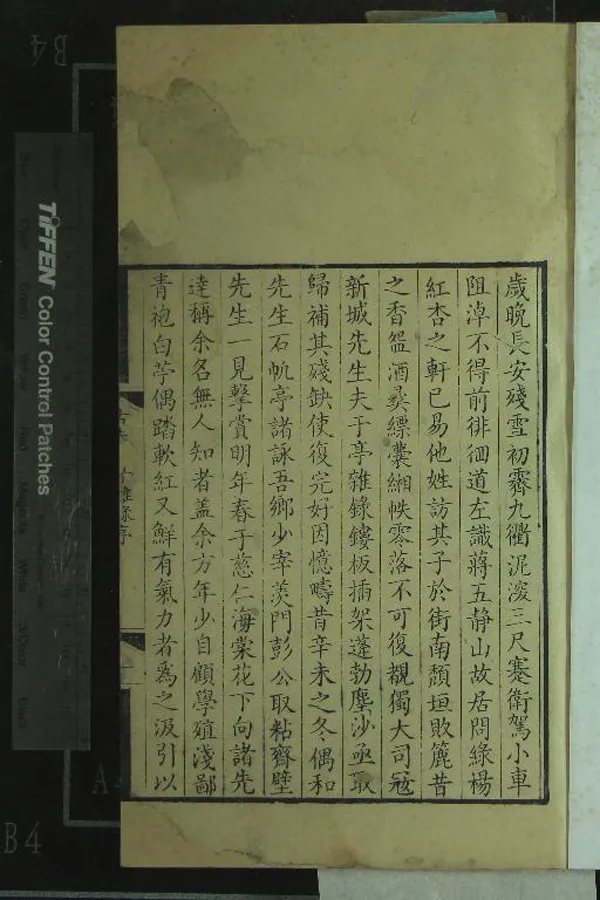 歲晚長安殘雪初霽九衢泥滾三尺蹇衛駕小車
阻淖不得前徘徊道左識蔣五静山故居問綠楊
紅杏之軒已易他姓訪其子於街南頹垣敗簏昔
之香盌酒彜縹囊緗帙零落不可復覩獨大司寇
新城先生夫于亭雜錄鏤板插架蓬勃塵沙亟取
歸補其殘缺使復完好因憶疇昔辛未之冬偶和
先生石帆亭諸詠吾鄉少宰羨門彭公取粘齊壁
先生一見擊賞明年春于慈仁海棠花下向諸先
達稱余名無人知者盖余方年少自顧學殖淺鄙
青袍白苧偶踏軟紅又鮮有氣力者爲之汲引以
TIFFEN Color Control Patches
B4
B4
A